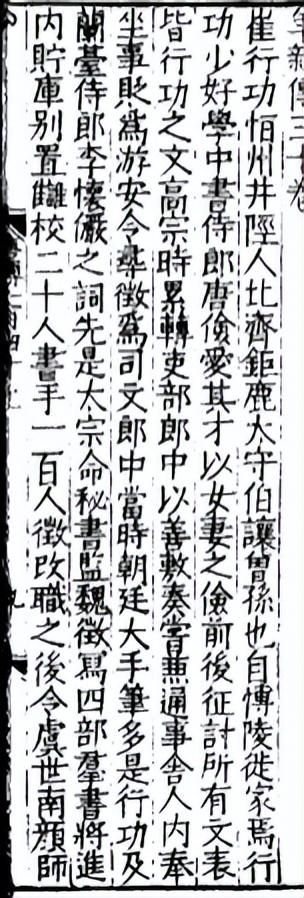 崔行功恒州井陘人北齊鉅鹿太守伯讓曾孫也自博陵徙家焉行
功少好學中書侍郎唐儉愛其才以女妻之儉前後征討所有文表
皆行功之文高宗時累轉吏部郎中以善敷奏嘗兼通事舍人内奉
坐事貶爲游安令尋徵爲司文郎中當時朝廷大手筆多是行功及
蘭臺侍郎李懷儼之詞先是大宗命秘書監魏徵寫四部羣書將進
内貯庫别置讎校二十人書手一百人徵改職之後令虞世南顔師